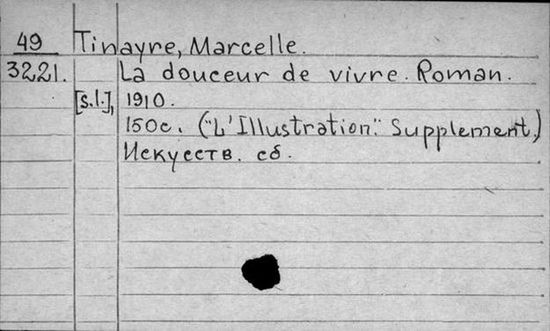 49 Tinayre, Marcelle.
3221. La douceur de vivre. Roman.
[s.l.], 1910.
150c. ("L'Illustration". Supplement,)
Искусств. сб.